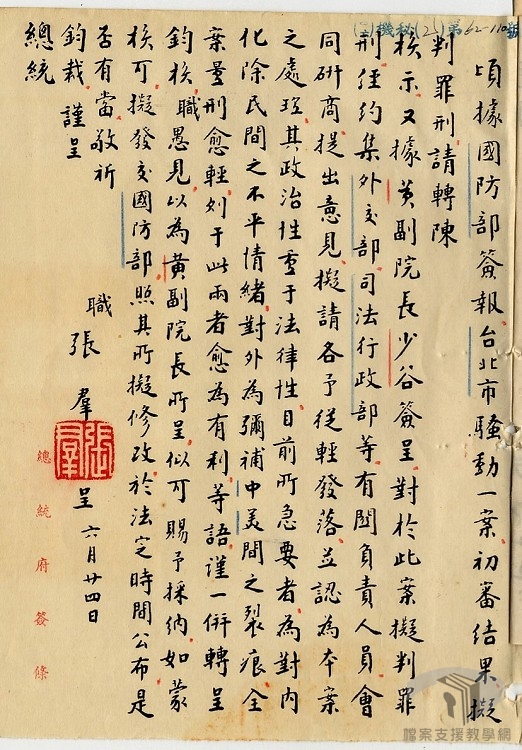 (三)機秘(乙)第62-110號
頃據國防部簽報台北市騷動一案初審結果擬
判罪刑請轉陳
核示又據黃副院長少谷簽呈對於此案擬判罪
刑經約集外交部司法行政部等有關負責人員會
同研商提出意見擬請各予從輕發落並認為本案
之處理其政治性重于法律性目前所急要者為對內
化除民間之不平情緒對外為彌補中美間之裂痕全
案量刑愈輕則于此兩者愈為有利等語謹一併轉呈
鈞核職愚見以為黃副院長所呈似可賜予採納如蒙
核可擬發交國防部照其所擬修改於法定時間公布是
否有當敬祈
鈞裁 謹呈
總統
職 張羣 呈 六月廿四日
張羣
總統府簽條
檔案支援教學網